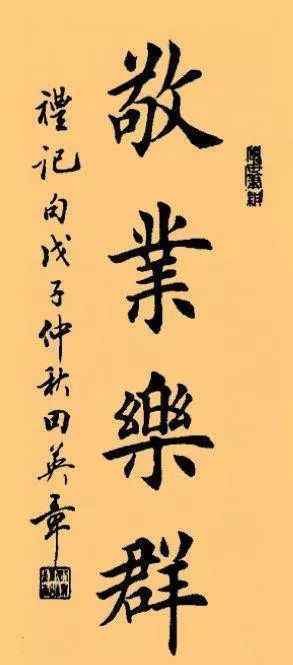 敬業樂群
禮記句戊子仲秋田英章